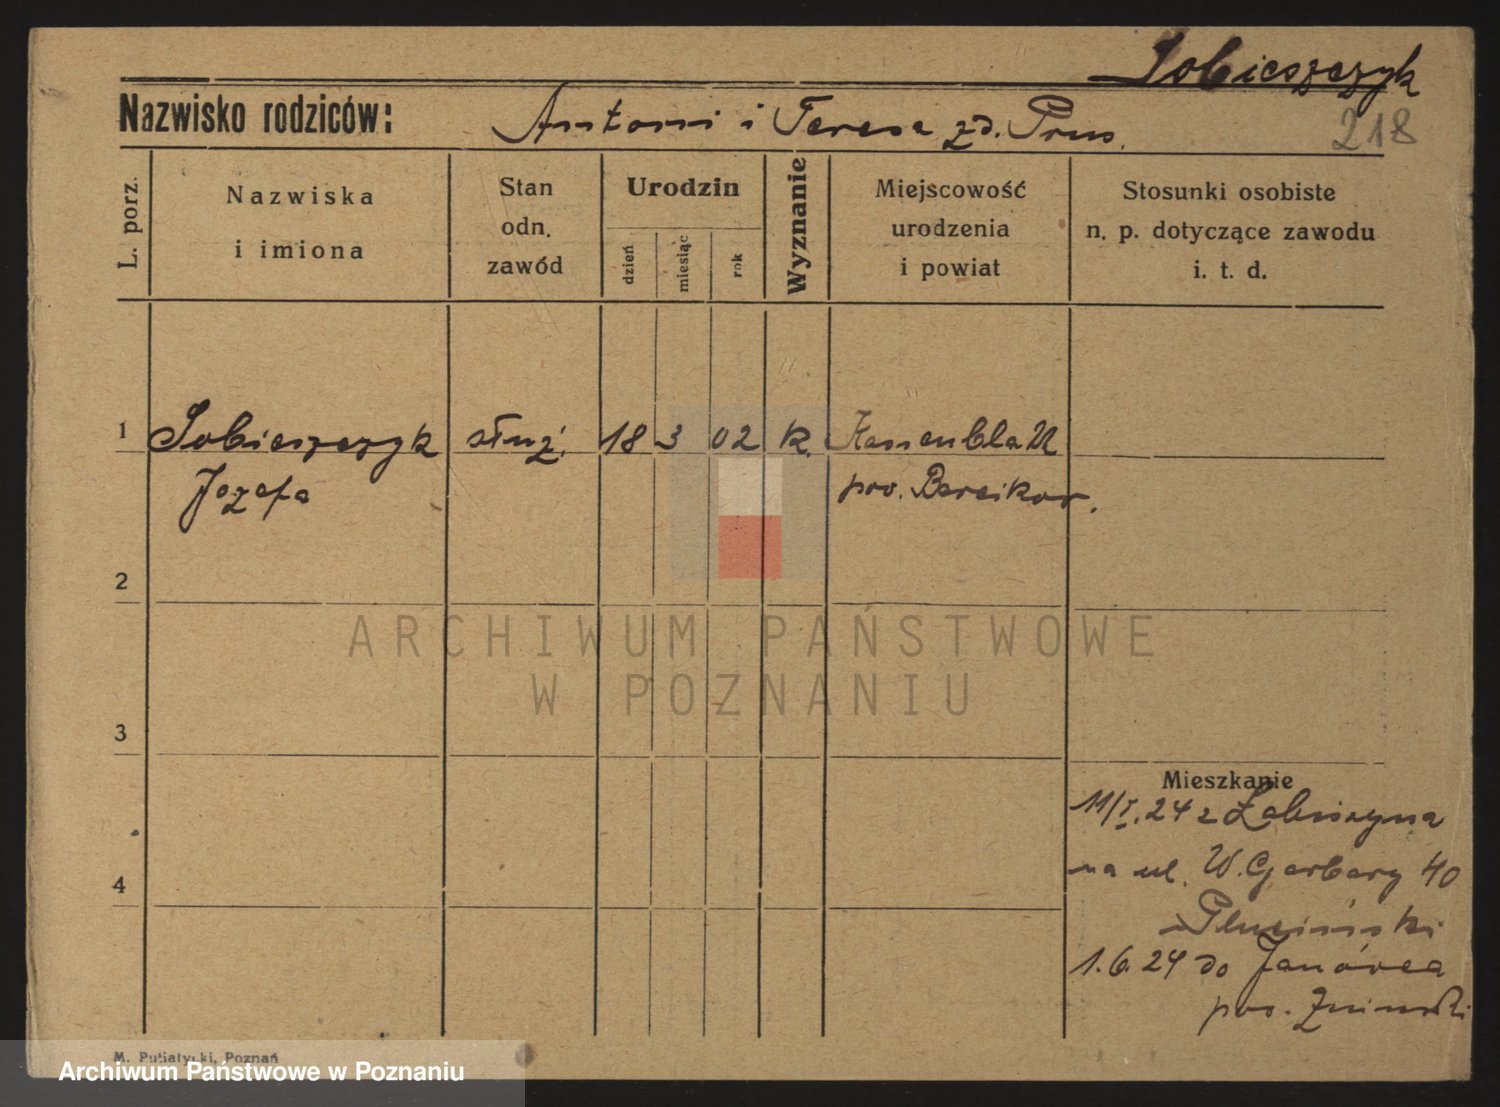 Sobieszczyk
Nazwisko rodziców: Antoni i Teresa zd. Prus.
218
L. porz.
Nazwiska
i imiona
Stan
odn.
zawód
Urodzin
dzień
miesiąc
rok
Wyznanie
Miejscowość
urodzenia
i powiat
Stosunki osobiste
n. p. dotyczące zawodu
i. t. d.
1 Sobieszczyk służ. 18 3 02 k.
Józefa pow.
2
3
4
Mieszkanie
11/I. 24 z Łabiszyna
na ul. W. Garbary 40
1.6.24 do Janówca
pow. Żniński
M. Putiatycki, Poznań
ARCHIWUM PAŃSTWOWE
W POZNANIU
Archiwum Państwowe w Poznaniu